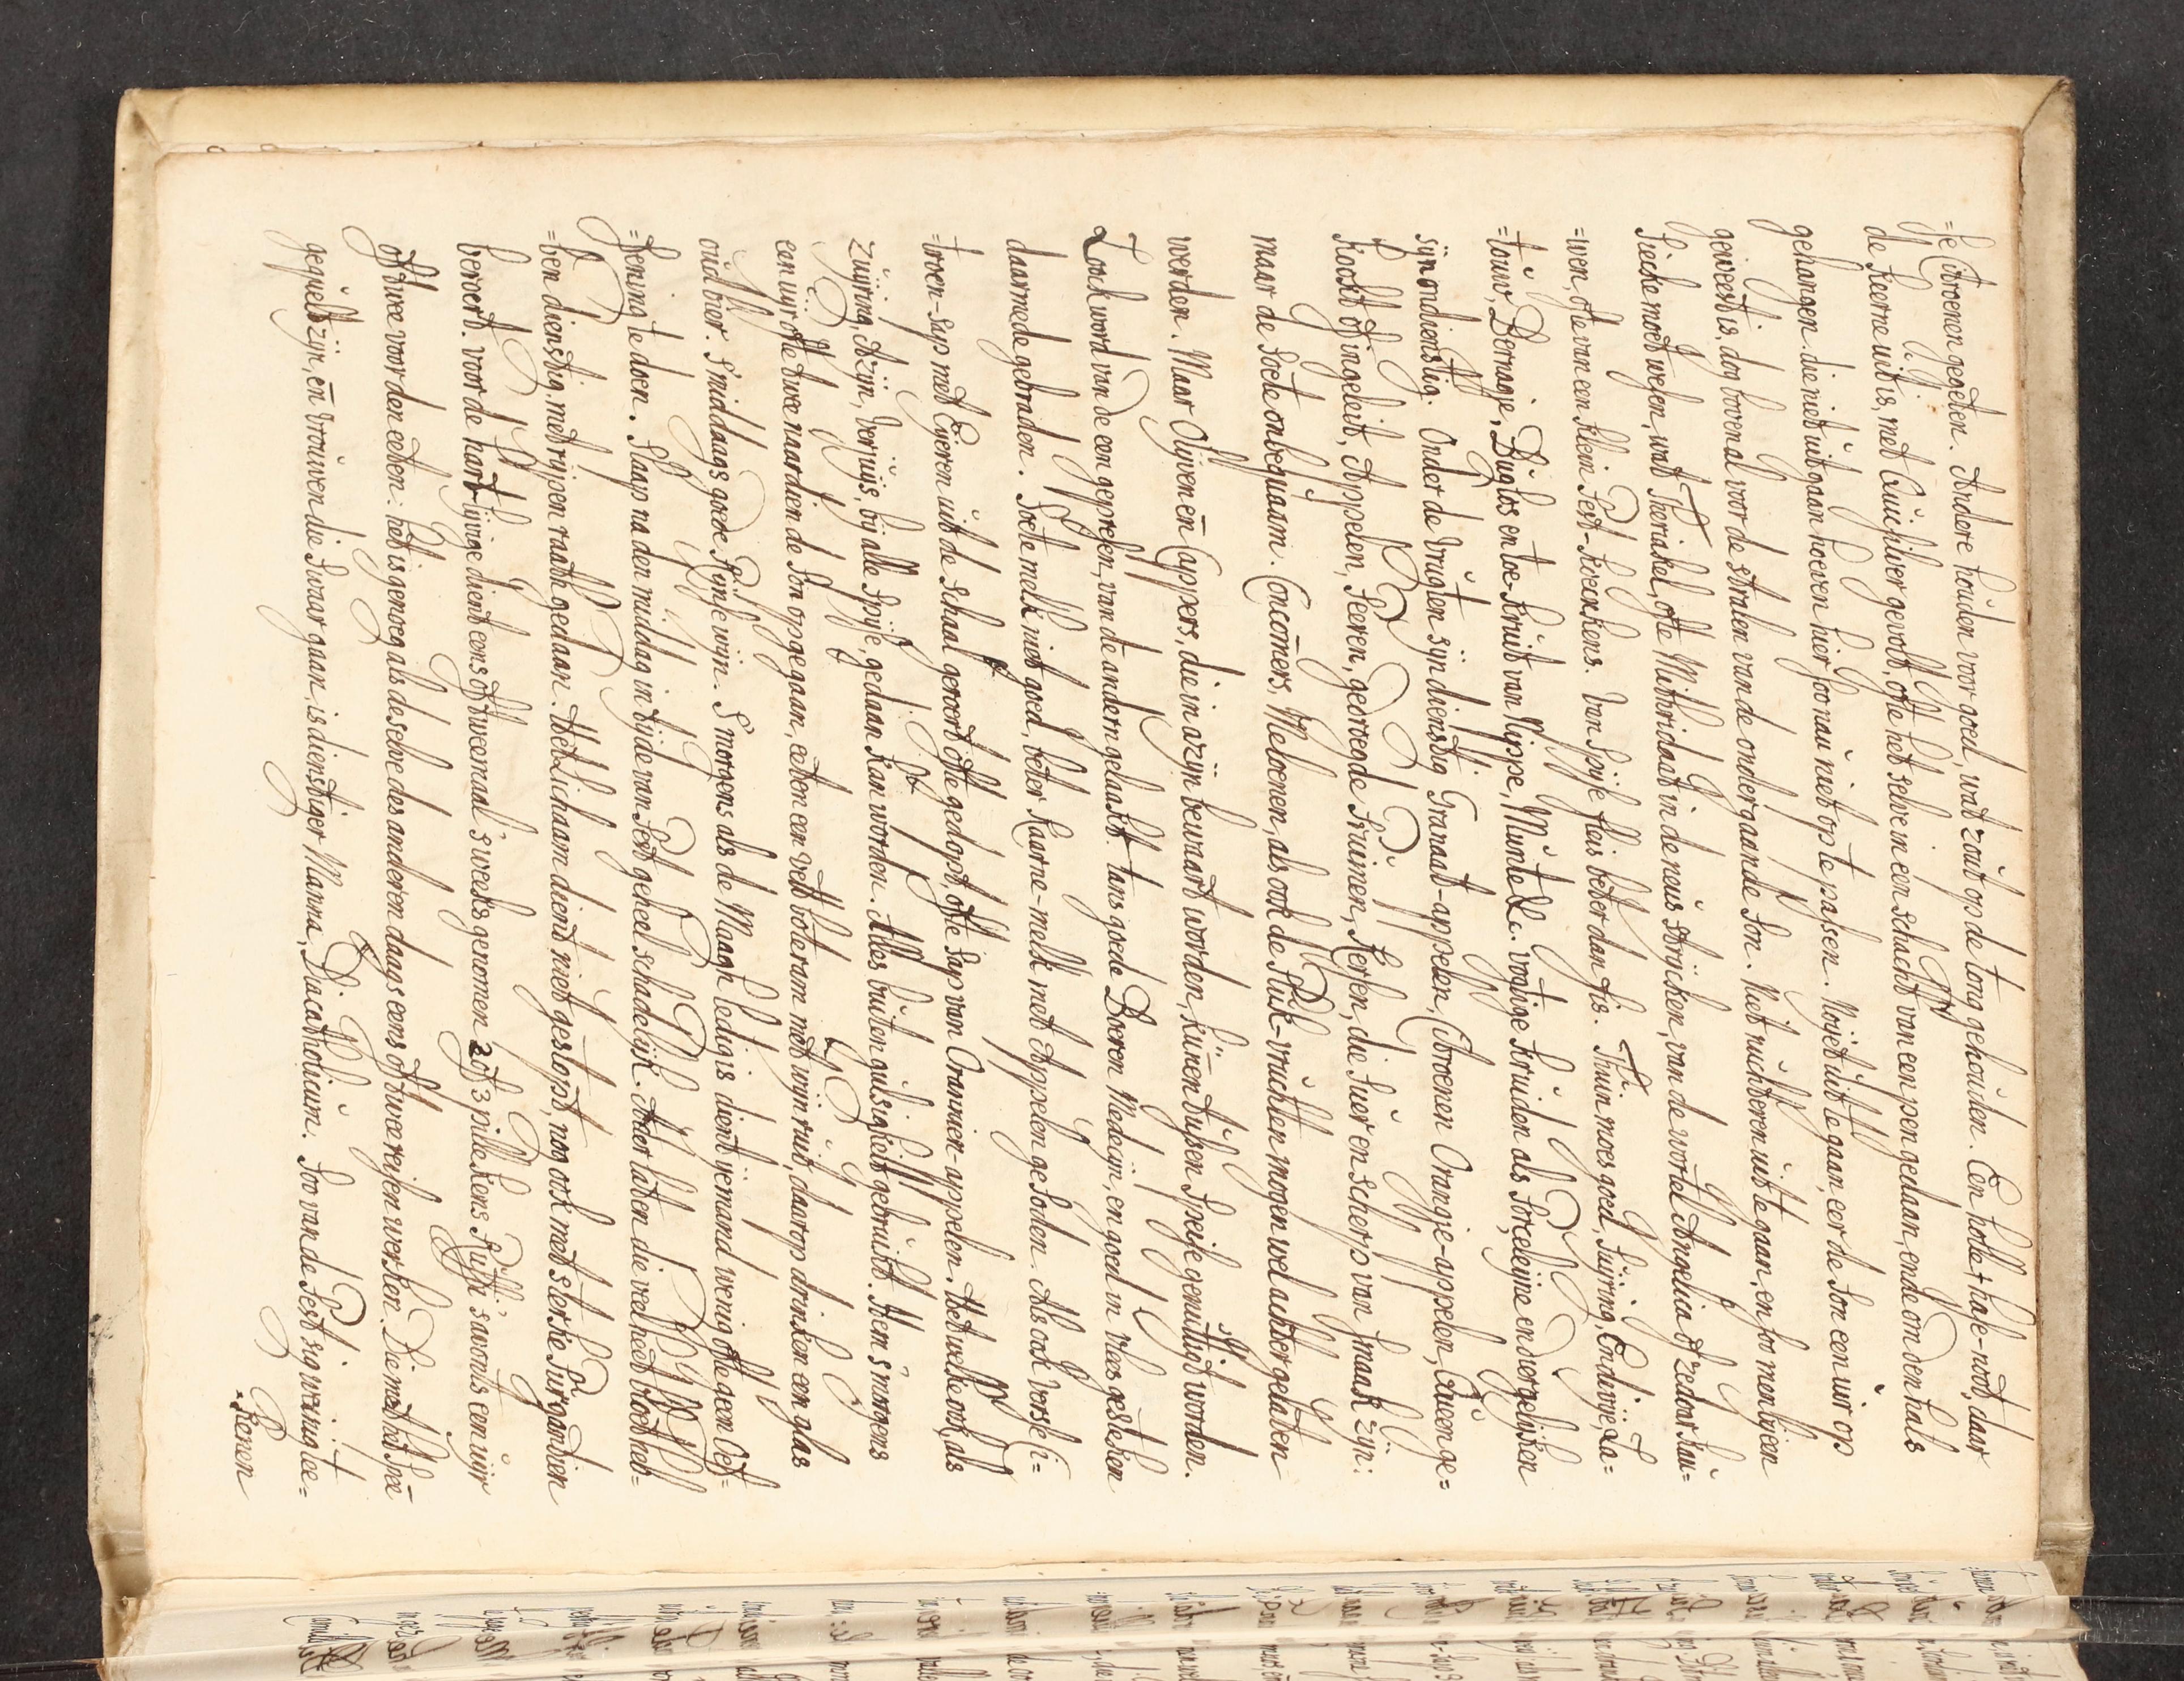 =se Citroenen gegeten. Andere houden voor goed, wat zout op de tong gehouden. Een holle + hase-not, daar
de keerne uit is, met Quicksilver gevolt, ofte het selve in een schacht van een pen gedaan, ende om den hals
gehangen. die niet uit gaan hoeven hier soo nau niet op te passen. Noijt uit te gaan, eer de Son een uir op
geweest is, dog bovenal voor de stralen van de ondergaande Son. Niet nuchteren uit te gaan, en so men bijeen
Siecke moet wesen, wat Theriakel, ofte Mithridaat in de neus strijcken, van de wortel Angelica of zedoar kau=
=wen, ofte van een klein Pest-koeckens. Van Spijse fleis beter dan fis. Thuin moes goed, Suijring, Endivije, La=
=touw, Bernagje, Buglos en toe-kruit van Nippe, Munte &c. vogtige kruiden als Porceleijne en diergelijken
sijn ondienstig. Onder de vrugten sijn dienstig Granaat-appelen, Citroenen Orangje-appelen, Queen ge=
kookt of ingeleit, Appelen, Peeren, gedroegde Pruimen, Kersen, die suer en scherp van smaak zijn:
maar de soete onbequaam. Concomers, Meloenen, als ook de Pluk-vruchten mogen wel achter gelaten
werden. Maar Olijven en Cappers, die in azijn bewaart worden, kunnen tussen Speise genuttigt worden.
Look word van de een gepresen, van de andern gelaakt. tans goede Boeren Medecijn, en goed in vlees gesteken
daarmede gebraden. Soete melk niet goed, beter Kaarne-melk met Appelen gesoden. Als ook verse Ci=
=troen-Sap met Eijeren uit de Schaal geroert ofte gedopt, ofte Sap van Orannien appelen. Het welke ook als
zuijring, Azijn, Verjuijs, bij alle Spijse, gedaan kan worden. Alles buiten gulsigheit gebruikt. Item s'morgens
een uijr ofte twee naar dien de Son op gegaan, eeten een vette boteram met wijn ruit, daar op drinken een glas
oud bier. S'middags goede Rijnse wijn. S'morgens als de Maagh ledig is dient ijemand weinig ofte geen Oef=
=fening te doen. Slaap na den middag in tijde van Pest geheel schadelijk. Ader laten die veel heet bloet heb=
=ben dienstig. met rijpen raath gedaan. Het Lichaam dient niet gestopt, nog ook met sterke Purgandien
beroert. voor de hart-lijvige dient eens oft tweemaal s'weeks genomen 2 of 3 pillekens Ruffi s'avonts een uijr
oft twee voor den eeten: het is genoeg als deselve des anderen daags eens oft twee reijsen werken. Die met het Spee
gequelt zijn, en vrouwen die swaar gaan, is dienstiger Manna, Diacatholicum. Soo van de Pest sig weinig tee=
=kenen